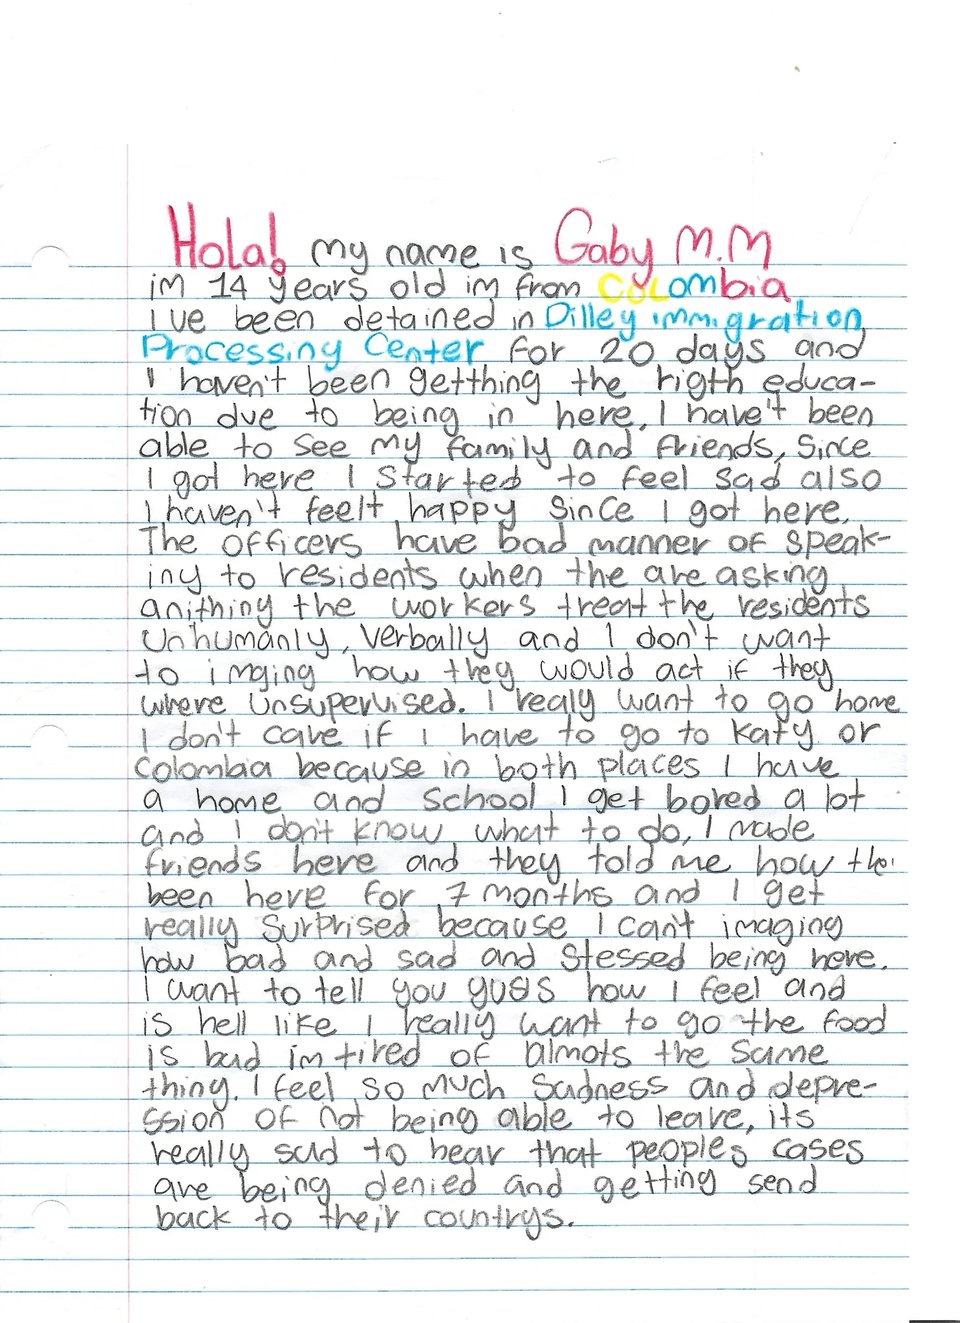 Hola! my name is Gaby M.M
im 14 years old im from COLombia
I've been detained in Dilley immigration
Processing Center for 20 days and
I haven't been getthing the rigth educa-
tion due to being in here, I have't been
able to see my family and friends, Since
I got here I Started to feel sad also
I haven't feelt happy Since I got here.
The officers have bad manner of speak-
iny to residents when the are asking
anithing the workers treat the residents
Unhumanly, verbally and I don't want
to imging how they would act if they
where Unsupervised. I realy want to go home
I don't care if I have to go to Katy or
Colombia because in both places I have
a home and School I get bored a lot
and I don't know what to do, I made
friends here and they told me how the
been here for 7 months and I get
really Surprised because I can't imaging
how bad and sad and Stessed being here.
I want to tell you guys how I feel and
is hell like I really want to go the food
is bad im tired of almots the same
thing. I feel so much Sadness and depre-
ssion of not being able to leave, its
really sad to hear that peoples cases
are being denied and getting send
back to their countrys.